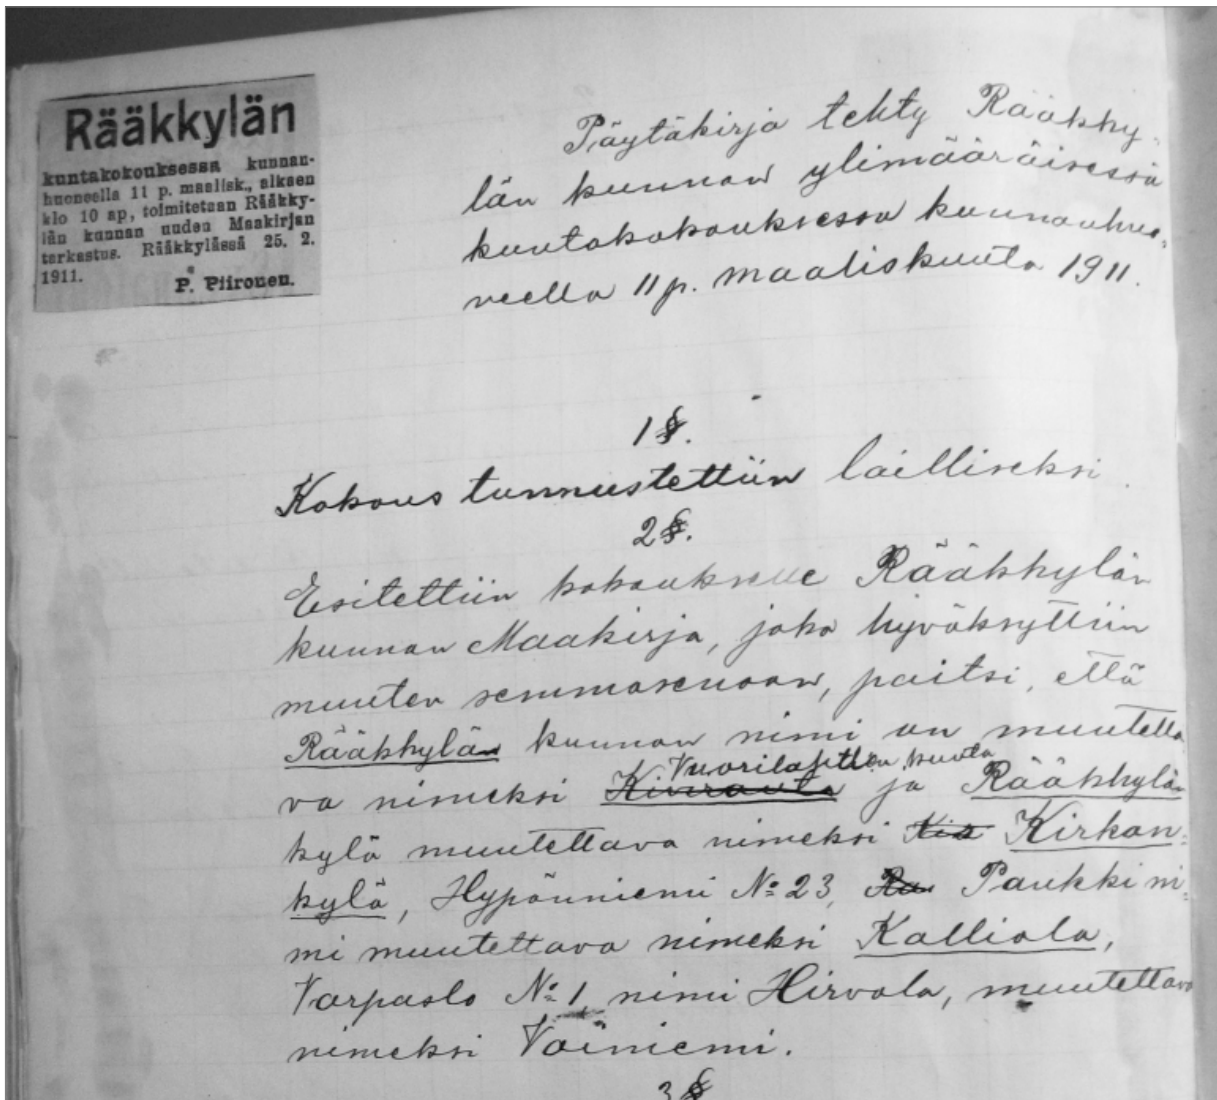 Rääkkylän
kuntakokouksessa kunnan-
huoneella 11 p. maalisk., alkaen
klo 10 ap, toimitetaan Rääkky-
län kunnan uuden Maakirjan
tarkastus. Rääkkylässä 25. 2.
1911.
P. Piironen.
Päytäkirja tehty Rääkky-
län kunnan ylimääräisessä
kuntakokouksessa kunnanhuo-
neella 11 p. maaliskuuta 1911.
1 §.
Kokous tunnustettiin lailliseksi.
2 §.
Esitettiin kokoukselle Rääkkylän
kunnan Maakirja, joka hyväksyttiin
muuten semmosenaan, paitsi, että
Rääkkylän kunnan nimi on muutetta
Vuorilahden kunta
va nimeksi ja Rääkkylän
kylä muutettava nimeksi Kirkon-
kylä, Hypönniemi No 23, Paukki ni-
mi muutettava nimeksi Kalliola,
Varpaslo No 1 nimi Hirvola, muutettava
nimeksi Väiniemi.
3 §